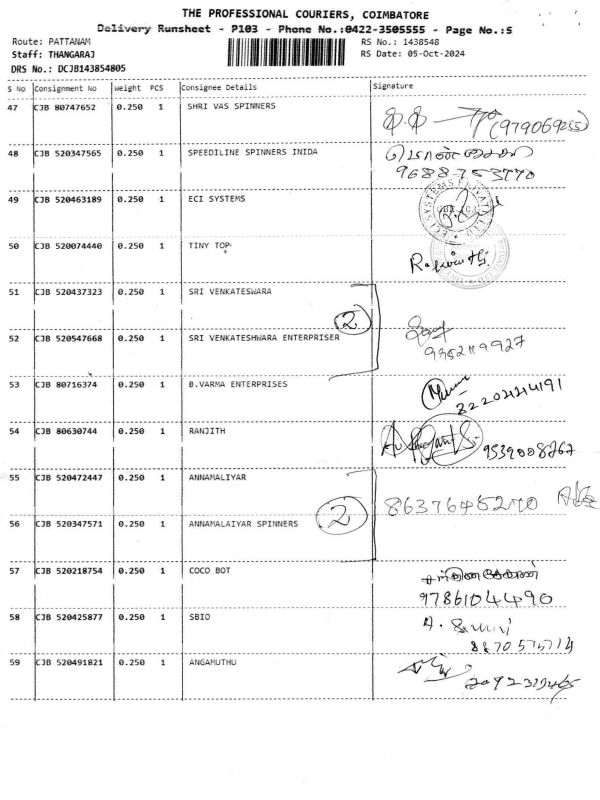 THE PROFESSIONAL COURIERS, COIMBATORE
Delivery Runsheet - P103 - Phone No.:0422-3505555 - Page No.:5
Route: PATTANAM
RS No.: 1438548
Staff: THANGARAJ
RS Date: 05-Oct-2024
DRS No.: DCJB143854805
S No Consignment No Weight PCS Consignee Details Signature
47 CJB 80747652 0.250 1 SHRI VAS SPINNERS
48 CJB 520347565 0.250 1 SPEEDILINE SPINNERS INIDA
9688753770
49 CJB 520463189 0.250 1 ECI SYSTEMS
50 CJB 520074440 0.250 1 TINY TOP
51 CJB 520437323 0.250 1 SRI VENKATESWARA
2
52 CJB 520547668 0.250 1 SRI VENKATESHWARA ENTERPRISER
53 CJB 80716374 0.250 1 B.VARMA ENTERPRISES
54 CJB 80630744 0.250 1 RANJITH
55 CJB 520472447 0.250 1 ANNAMALIYAR
2
56 CJB 520347571 0.250 1 ANNAMALAIYAR SPINNERS
57 CJB 520218754 0.250 1 COCO BOT
9786104490
58 CJB 520425877 0.250 1 SBIO
59 CJB 520491821 0.250 1 ANGAMUTHU